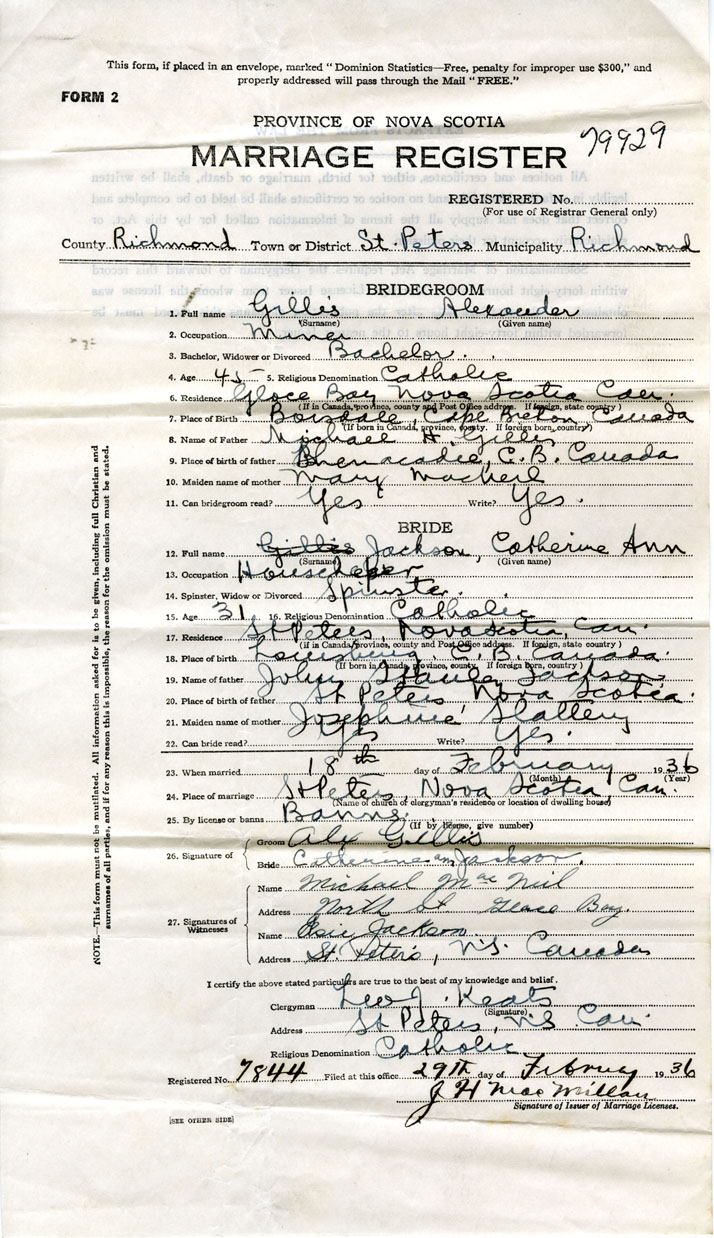 This form, if placed in an envelope, marked "Dominion Statistics—Free, penalty for improper use $300," and
properly addressed will pass through the Mail "FREE."
FORM 2
PROVINCE OF NOVA SCOTIA
79929
MARRIAGE REGISTER
REGISTERED No.
(For use of Registrar General only)
County Richmond Town or District St. Peters Municipality Richmond
BRIDEGROOM
1. Full name Gillis Alexander
(Surname) (Given name)
2. Occupation Miner
3. Bachelor, Widower or Divorced Bachelor.
4. Age 45 5. Religious Denomination Catholic
6. Residence Glace Bay Nova Scotia Can.
(If in Canada, province, county and Post Office address. If foreign, state country)
7. Place of Birth Boisdale, Cape Breton Canada
(If born in Canada, province, county. If foreign born, country)
8. Name of Father Michael A. Gillis
9. Place of birth of father Bhenacadie, C.B. Canada
10. Maiden name of mother Mary MacNeil
11. Can bridegroom read? Yes Write? Yes.
BRIDE
12. Full name Gillis Jackson, Catherine Ann
(Surname) (Given name)
13. Occupation Housekeeper
14. Spinster, Widow or Divorced Spinster.
15. Age 31 16. Religious Denomination Catholic
17. Residence St Peters, Nova Scotia, Can.
(If in Canada province, county and Post Office address. If foreign, state country)
18. Place of birth Louisburg C.B. Canada.
(If born in Canada, province, county. If foreign born, country)
19. Name of father John Stanley Jackson
20. Place of birth of father St Peters Nova Scotia.
21. Maiden name of mother Josephine Slattery
22. Can bride read? Yes Write? Yes.
23. When married 18th day of February 1936
(Month) (Year)
24. Place of marriage St Peters, Nova Scotia Can.
(Name of church of clergyman's residence or location of dwelling house)
25. By license or banns Banns
(If by license, give number)
26. Signature of Groom Alex Gillis
Bride Catherine Ann Jackson.
27. Signatures of Witnesses
Name Michael MacNeil
Address North St Glace Bay.
Name Jackson
Address St. Peter's, N.S. Canada
I certify the above stated particulars are true to the best of my knowledge and belief.
Clergyman Leo J. Keats
(Signature)
Address St Peters, N.S. Can.
Religious Denomination Catholic
Registered No. 7844 Filed at this office 29th day of Februy 1936
J H MacMillan
Signature of Issuer of Marriage Licenses.
[SEE OTHER SIDE]
NOTE.—This form must not be mutilated. All information asked for is to be given, including full Christian and
surnames of all parties, and if for any reason this is impossible, the reason for the omission must be stated.